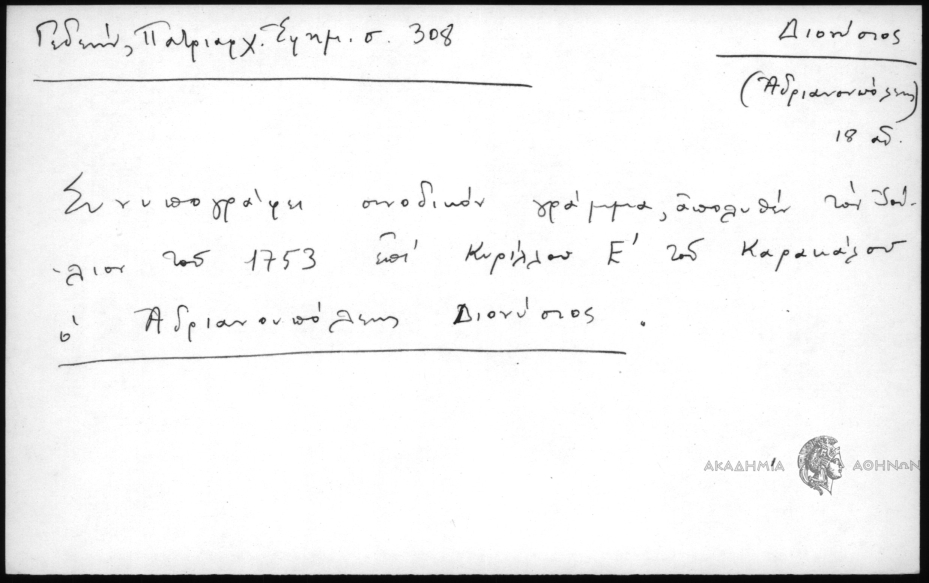 Γεδεών, Πατριαρχ. Ἐφημ. σ. 308
Διονύσιος
(Ἀδριανουπόλεως)
18 αἰ.
Συνυπογράφει συνοδικόν γράμμα, ἀπολυθέν τόν Ἰού-
λιον τοῦ 1753 ἐπί Κυρίλλου Ε' τοῦ Καρακάλου
ὁ Ἀδριανουπόλεως Διονύσιος.
ΑΚΑΔΗΜΙΑ ΑΘΗΝΩΝ